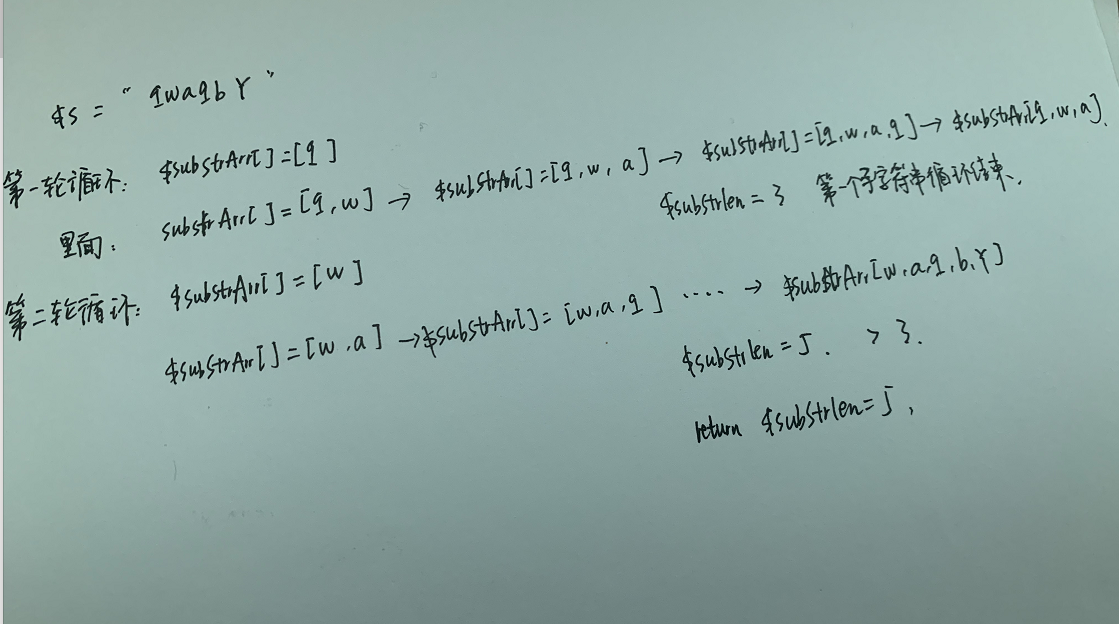 $s = "qwaqbr"
第一轮循环: $substrArr[] = [q]
里面: substrArr[] = [q, w] → $substrArr[] = [q, w, a] → $substrArr[] = [q, w, a, q] → $substrArr[q, w, a].
$substrlen = 3 第一个子字符串循环结束.
第二轮循环: $substrArr[] = [w]
$substrArr[] = [w, a] → $substrArr[] = [w, a, q] ···· → $substrArr[w, a, q, b, r]
$substrlen = 5. > 3.
return $substrlen = 5,